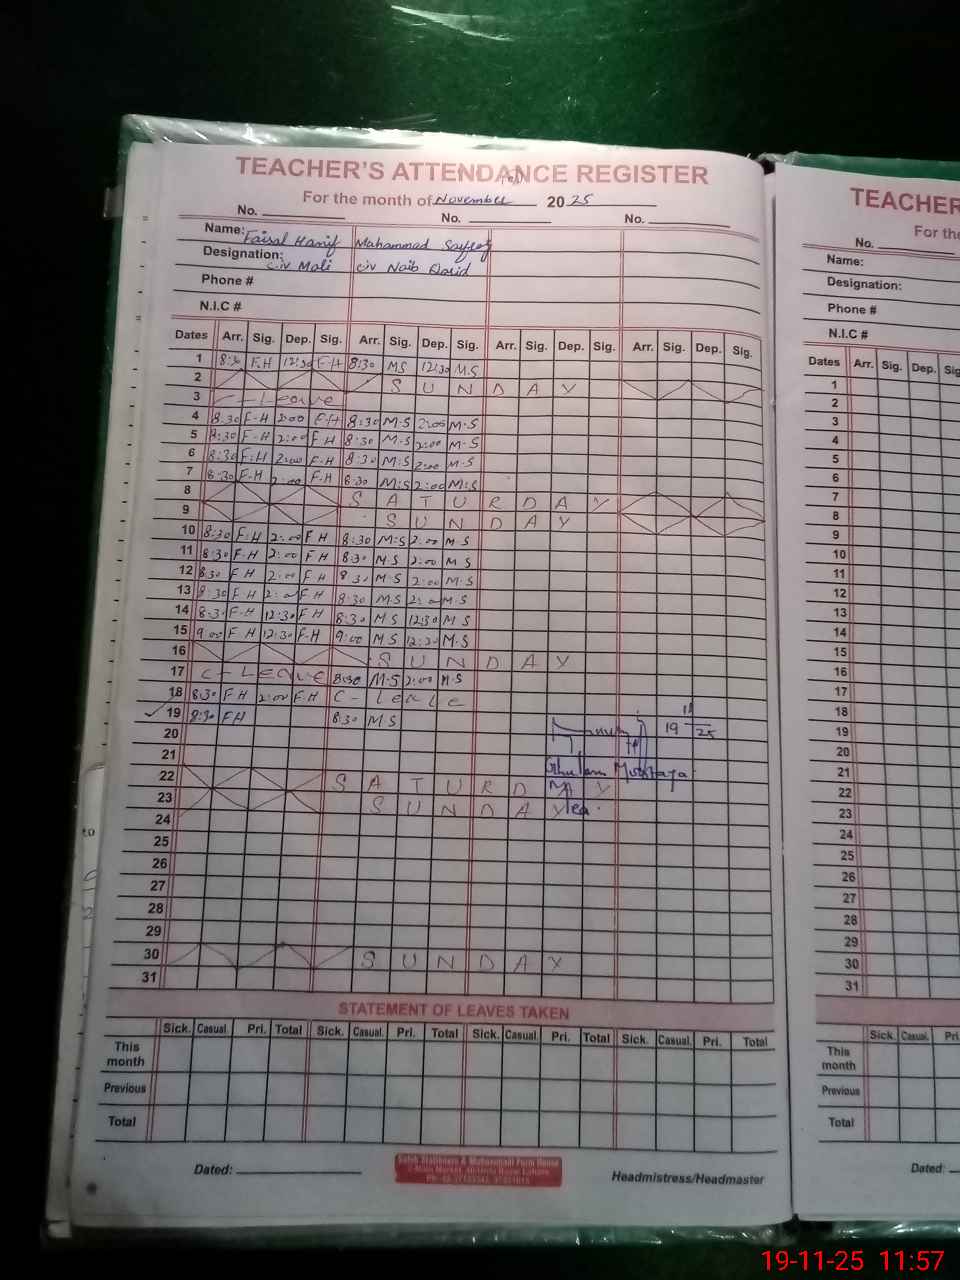 TEACHER'S ATTENDANCE REGISTER
For the month of November 2025
No. No. No.
Name: Faisal Hanif Mahammad
Designation: C-iv Mali C-iv Naib
Phone #
N.I.C #
Dates Arr. Sig. Dep. Sig. Arr. Sig. Dep. Sig. Arr. Sig. Dep. Sig. Arr. Sig. Dep. Sig.
1 8:30 F.H 12:30 F-H 8:30 MS 12:30 M.S
2 S U N D A Y
3 C-Leave
4 8:30 F-H 2:00 F.H 8:30 M-S 2:00 M-S
5 8:30 F-H 2:00 F H 8:30 M-S 2:00 M-S
6 8:30 F:H 2:00 F-H 8:30 M:S 2:00 M-S
7 8:30 F-H 2:00 F-H 8:30 M:S 2:00 M:S
8 S A T U R D A Y
9 S U N D A Y
10 8:30 F-H 2:00 F H 8:30 M:S 2:00 M S
11 8:30 F-H 2:00 F H 8:30 M S 2:00 M S
12 8:30 F H 2:00 F H 8:30 M-S 2:00 M-S
13 8:30 F-H 2:00 F-H 8:30 M-S 2:00 M-S
14 8:30 F-H 12:30 F H 8:30 M S 12:30 M S
15 9:00 F H 12:30 F-H 9:00 M S 12:30 M-S
16 S U N D A Y
17 C-LEAVE 8:30 M-S 2:00 M-S
18 8:30 F H 2:00 F H C-Leave
19 8:30 FH 8:30 M S 19 11 25
20
21 Ghulam Mustafa
22 S A T U R D A Y
23 S U N D A Y
24
25
26
27
28
29
30 S U N D A Y
31
STATEMENT OF LEAVES TAKEN
Sick. Casual. Pri. Total Sick. Casual. Pri. Total Sick. Casual. Pri. Total Sick. Casual. Pri. Total
This month
Previous
Total
Dated:
Headmistress/Headmaster
TEACHER
For the
No.
Name:
Designation:
Phone #
N.I.C #
Dates Arr. Sig. Dep.
1
2
3
4
5
6
7
8
9
10
11
12
13
14
15
16
17
18
19
20
21
22
23
24
25
26
27
28
29
30
31
Sick. Casual.
This month
Previous
Total
Dated:
19-11-25 11:57